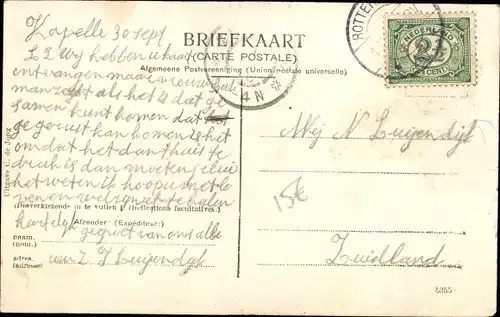 Kapelle 30 sept
L Z Wij hebben u kaart
ontvangen maar vrouw
man zegt als het is dat ge
samen kunt komen dat
ge gerust kan komen is het
omdat het dan thuis te
druk is dan moeten jelui
het weten ik hoop u met lo
ven en welzijn te halen
hartelijk
gegroet van ons alle
van L J Luijendijk
BRIEFKAART
(CARTE POSTALE)
Algemeene Postvereeniging (Union postale universelle)
Uitgave C. de Jong
(Desverkiezende in te vullen) (Indications facultatives.)
Afzender (Expéditeur:)
naam,
(nom.)
adres,
(adresse)
ROTTER
4 N
NEDERLAND
2½
CENT
Mej N Luijendijk
15€
Zuidland
5355